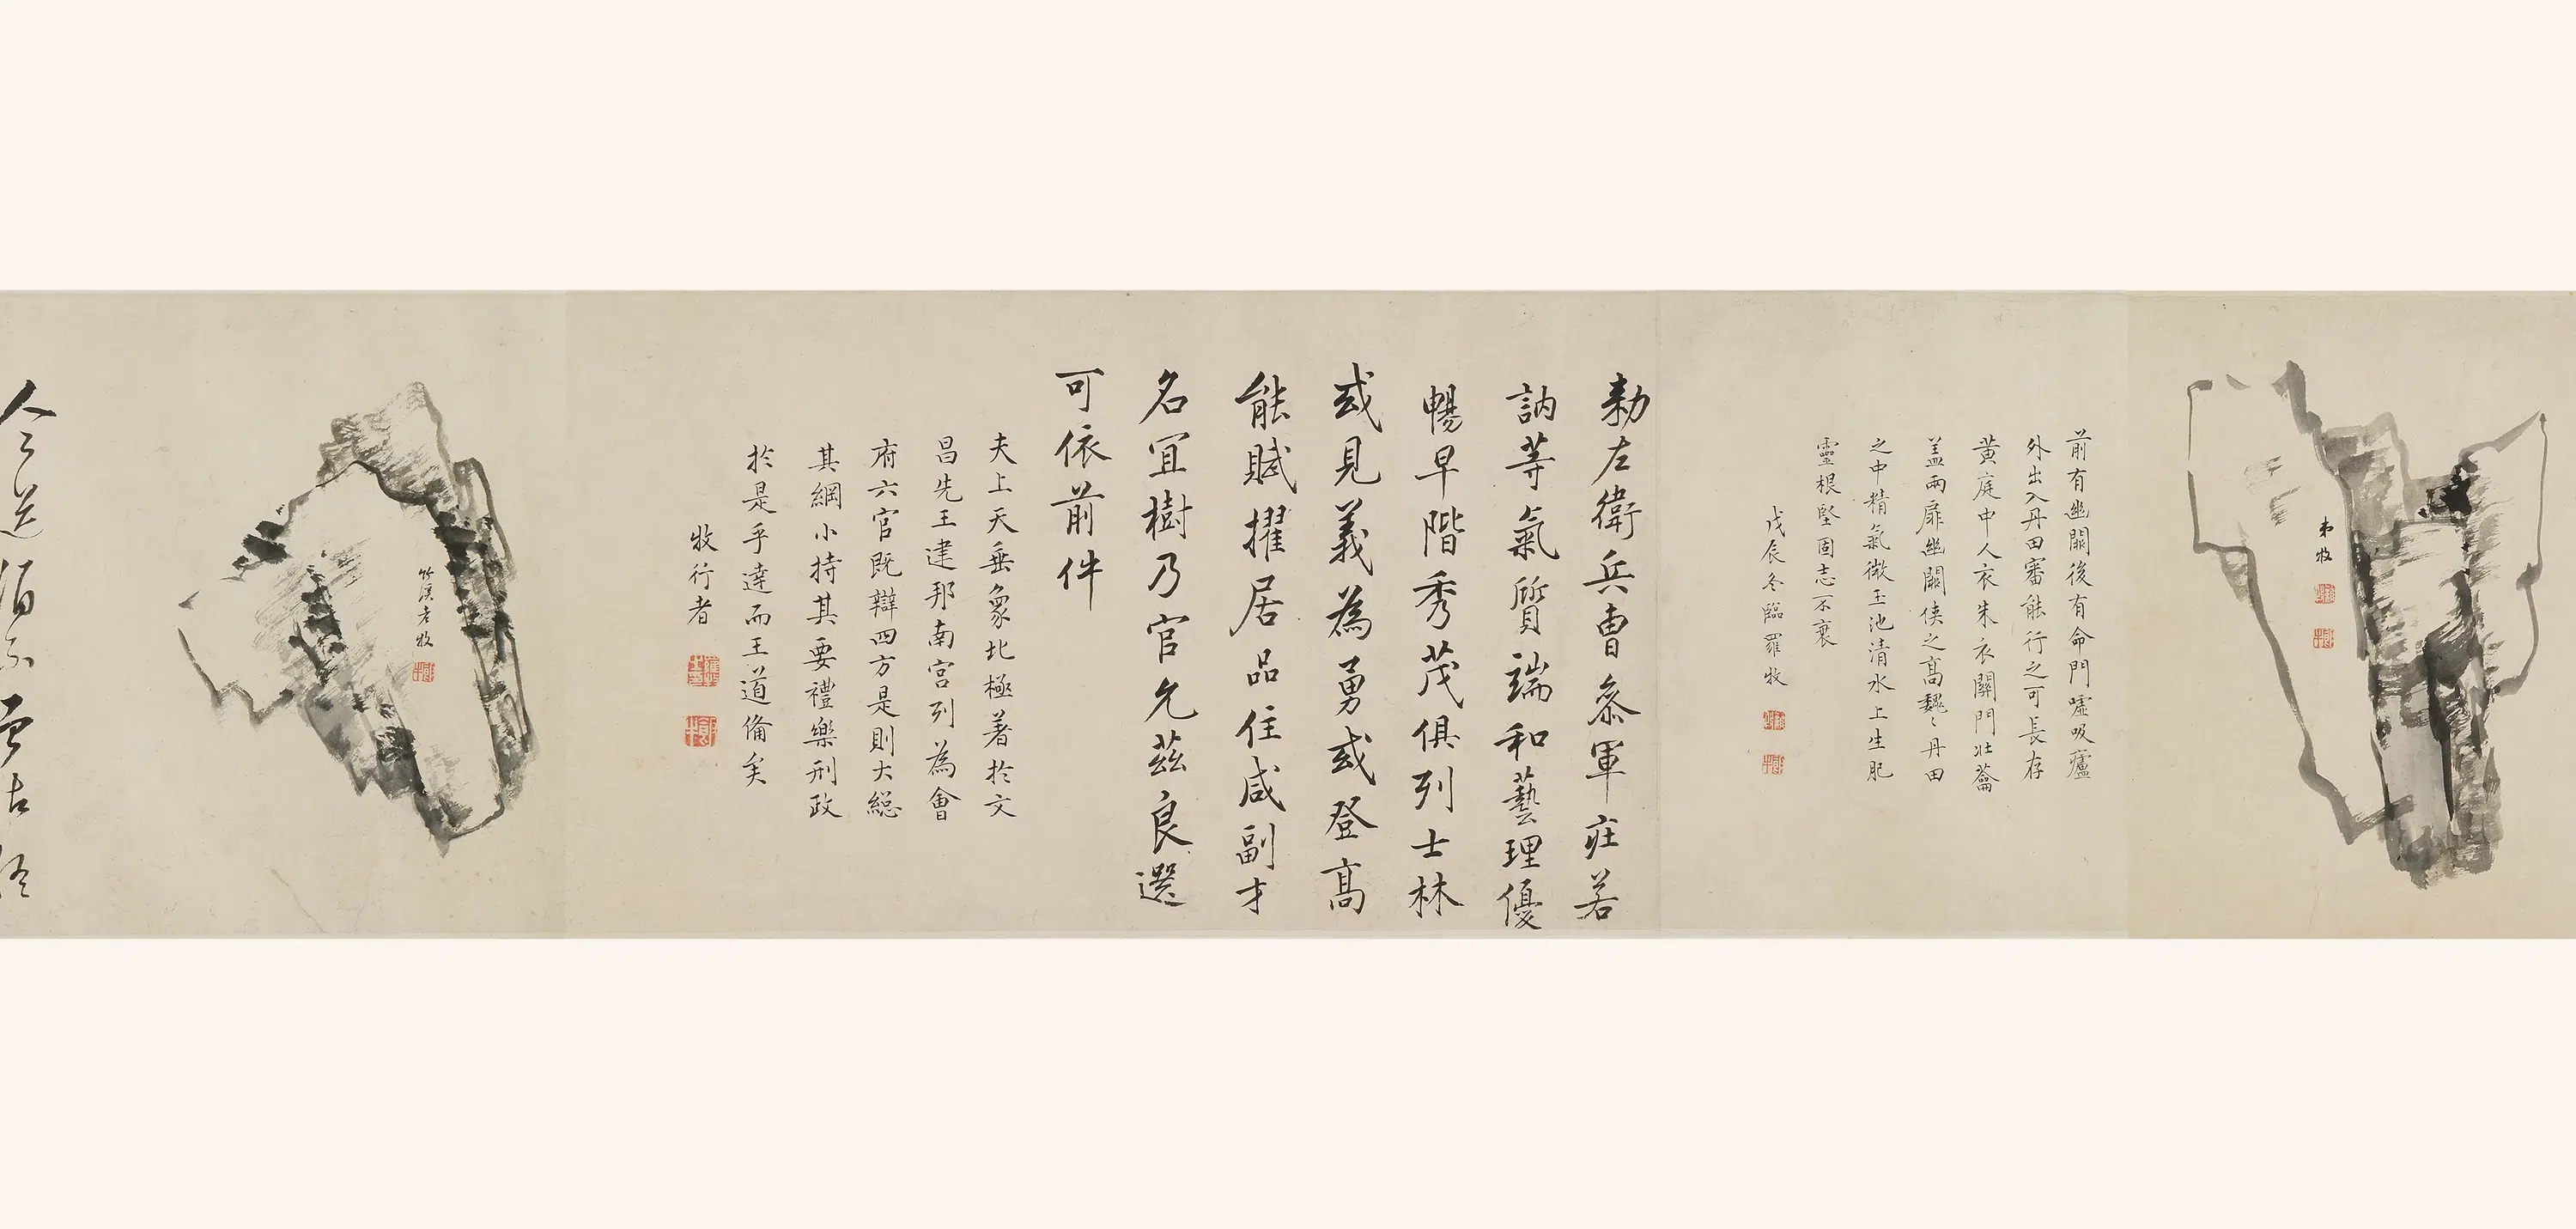 弟牧
前有幽闕後有命門噓吸廬
外出入丹田審能行之可長存
黃庭中人衣朱衣關門壯蘥
盖兩扉幽闕俠之高魏〻丹田
之中精氣微玉池清水上生肥
靈根堅固志不衰
戊辰冬臨羅牧
勑左衛兵曹叅軍莊若
訥等氣質端和藝理優
暢早階秀茂俱列士林
或見義為勇或登高
能賦擢居品住咸副才
名宜樹乃官允茲良選
可依前件
夫上天垂象北極著於文
昌先王建邦南宮列為會
府六官既辯四方是則大緫
其綱小持其要禮樂刑政
於是乎達而王道俻矣
牧行者
竹溪老牧